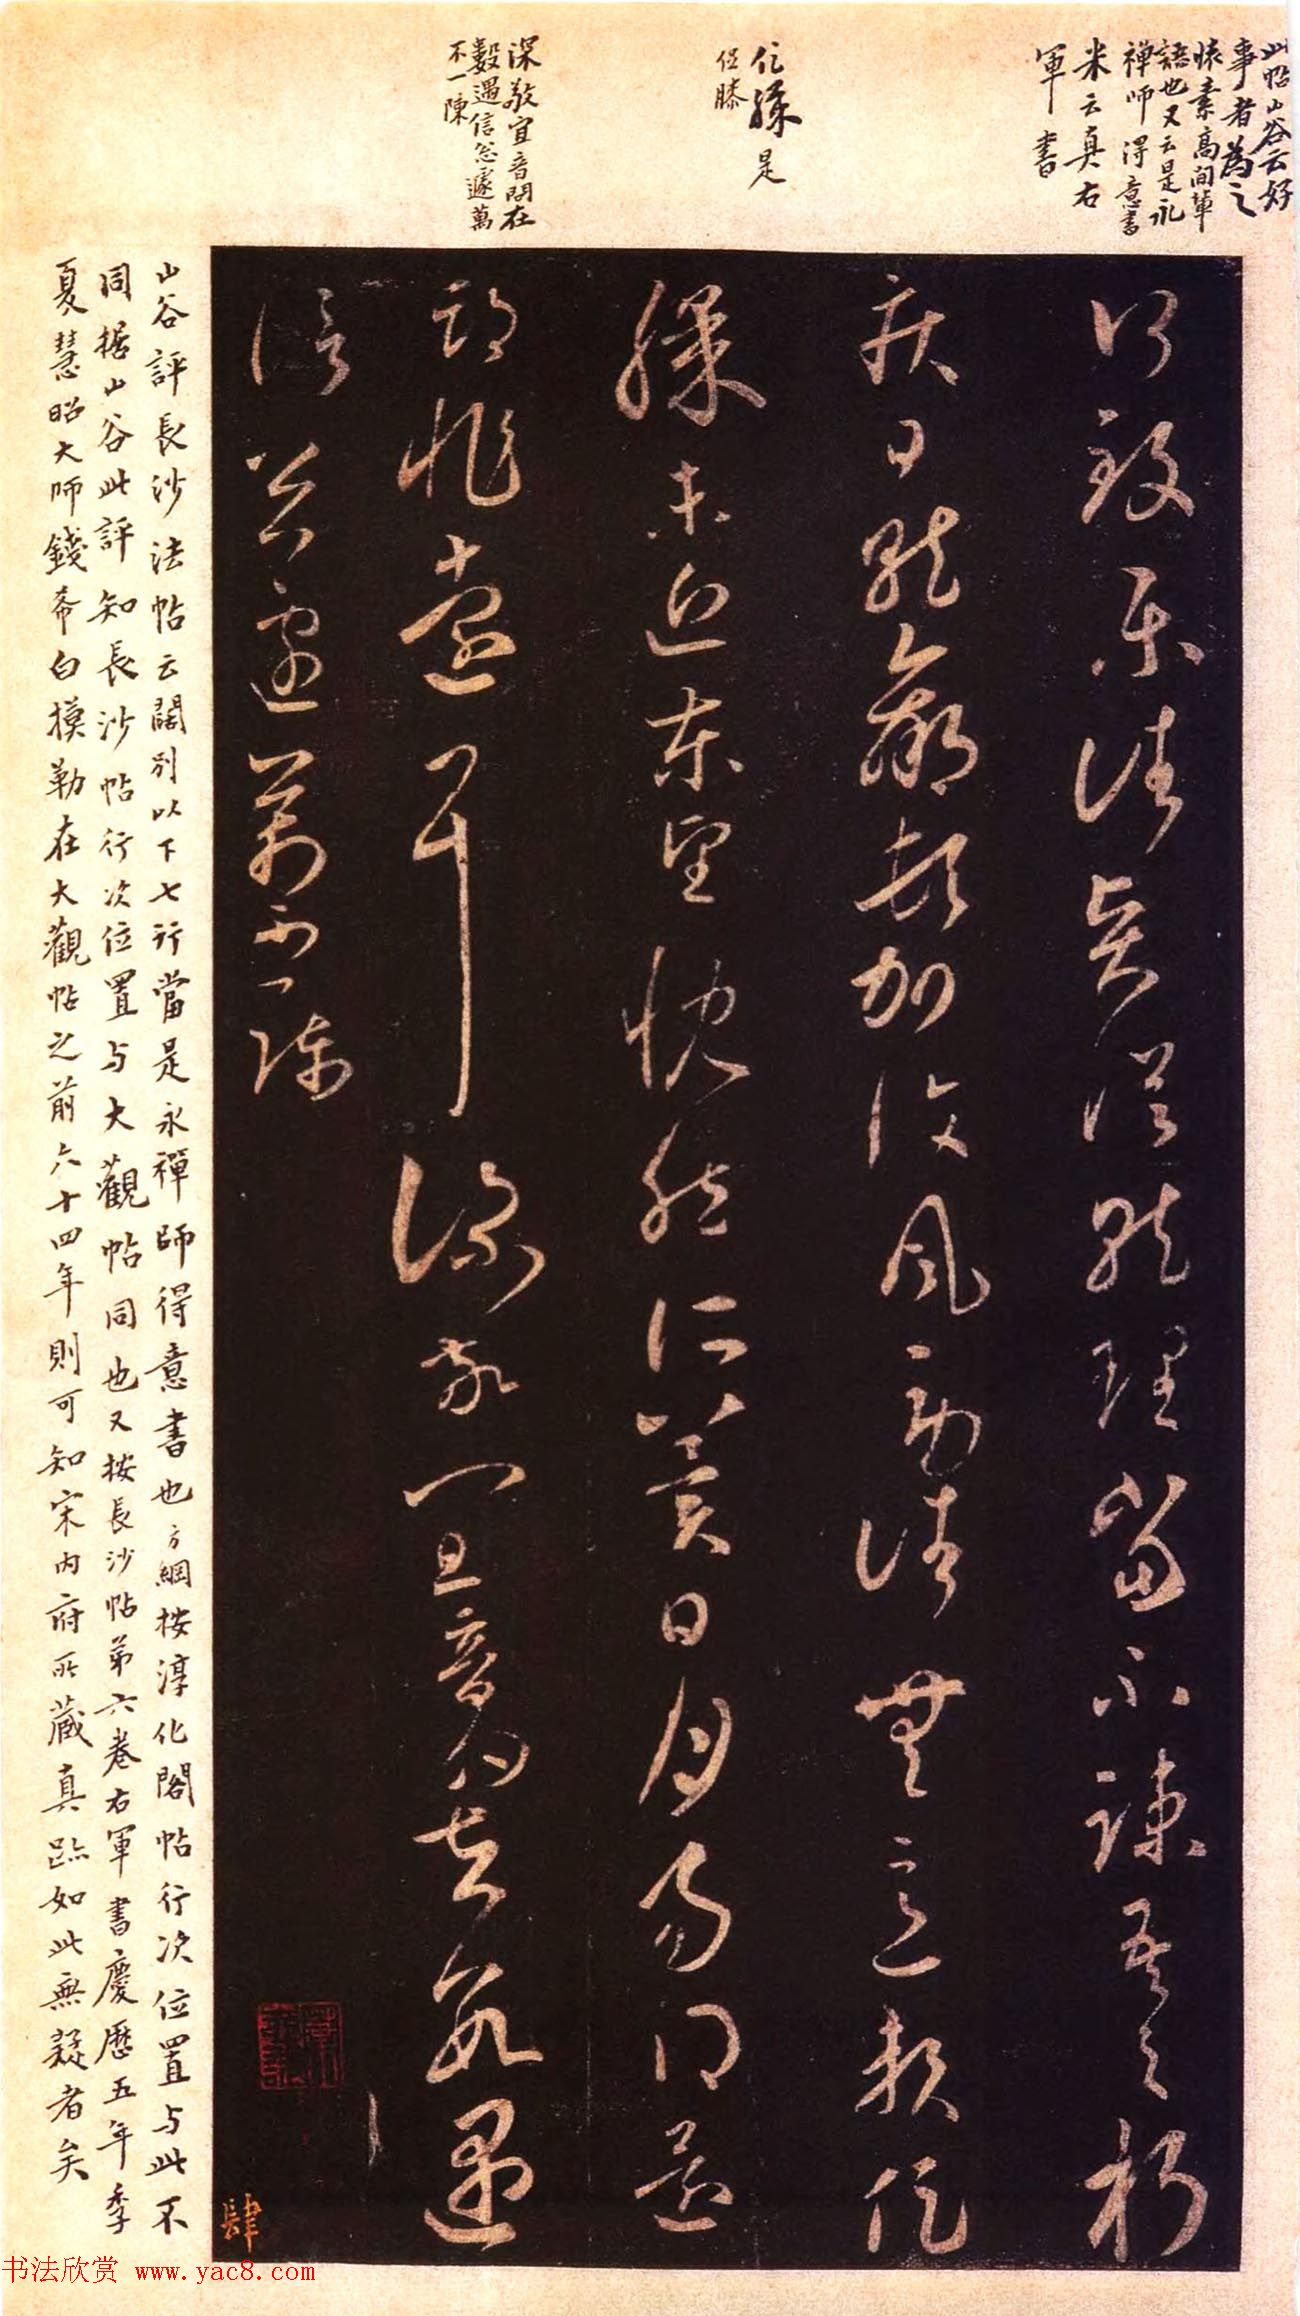 此帖山谷云好
事者為之
懐素高閑輩
語也又云是永
禪師得意書
米云真右
軍書
是
促膝
深敬宜音問在
數遇信怱遽萬
不一陳
何致樂諸賢從就理當不疎吾之朽
疾日就羸頓加復風勞諸無意賴促
膝未近東望慨然所冀日月易得還
期非遠耳深敬宜音問在數遇
信怱遽萬不一陳
肆
山谷評長沙法帖云闊別以下七行當是永禪師得意書也方綱按淳化閣帖行次位置与此不
同据山谷此評知長沙帖行次位置与大觀帖同也又按長沙帖第六卷右軍書慶歷五年季
夏慧照大師錢希白摸勒在大觀帖之前六十四年則可知宋内府所藏真跡如此無疑者矣
书法欣赏 www.yac8.com